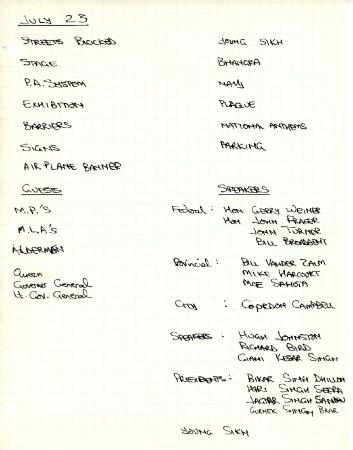 JULY 23
STREETS BLOCKED
STAGE
P.A. SYSTEM
EXHIBITION
BARRIERS
SIGNS
AIR PLANE BANNER
YOUNG SIKH
BHANGRA
NAVY
PLAQUE
NATIONAL ANTHEMS
PARKING
GUESTS
M.P.'S
M.L.A.'S
ALDERMAN
Queen
Governor General
Lt. Gov. General
SPEAKERS
Federal : HON GERRY WEINER
HON JOHN FRASER
JOHN TURNER
BILL BROADBENT
Provincial : BILL VANDER ZALM
MIKE HARCOURT
MOE SAHOTA
CITY : GORDON CAMPBELL
SPEAKERS : HUGH JOHNSTON
RICHARD BIRD
GIANI KESAR SINGH
PRESIDENTS : BIKAR SINGH DHILLON
HARI SINGH
JAGTAR SINGH SANDHU
SINGH
YOUNG SIKH